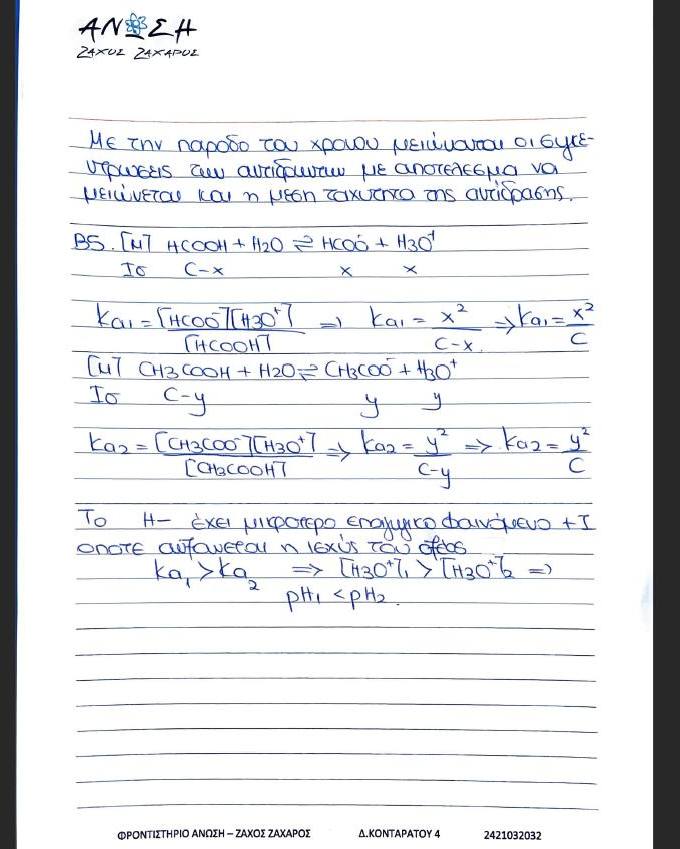 ΑΝΩΣΗ
ΖΑΧΟΣ ΖΑΧΑΡΟΣ
Με την παροδο του χρονου μειώνονται οι συγκε-
ντρωσεις των αντιδρωντων με αποτελεσμα να
μειώνεται και η μεση ταχυτητα της αντίδρασης.
Β5. [Μ] HCOOH + H2O ⇌ HCOO⁻ + H3O⁺
Ισ C-x x x
Ka1 = [HCOO⁻][H3O⁺] / [HCOOH] ⇒ Ka1 = x² / C-x ⇒ Ka1 = x² / C
[Μ] CH3COOH + H2O ⇌ CH3COO⁻ + H3O⁺
Ισ C-y y y
Ka2 = [CH3COO⁻][H3O⁺] / [CH3COOH] ⇒ Ka2 = y² / C-y ⇒ Ka2 = y² / C
Το H- έχει μικροτερο επαγωγικο φαινόμενο +I
οποτε αυξανεται η ισχύς του οξέος
Ka1 > Ka2 ⇒ [H3O⁺]1 > [H3O⁺]2 ⇒
pH1 < pH2.
ΦΡΟΝΤΙΣΤΗΡΙΟ ΑΝΩΣΗ – ΖΑΧΟΣ ΖΑΧΑΡΟΣ Δ.ΚΟΝΤΑΡΑΤΟΥ 4 2421032032